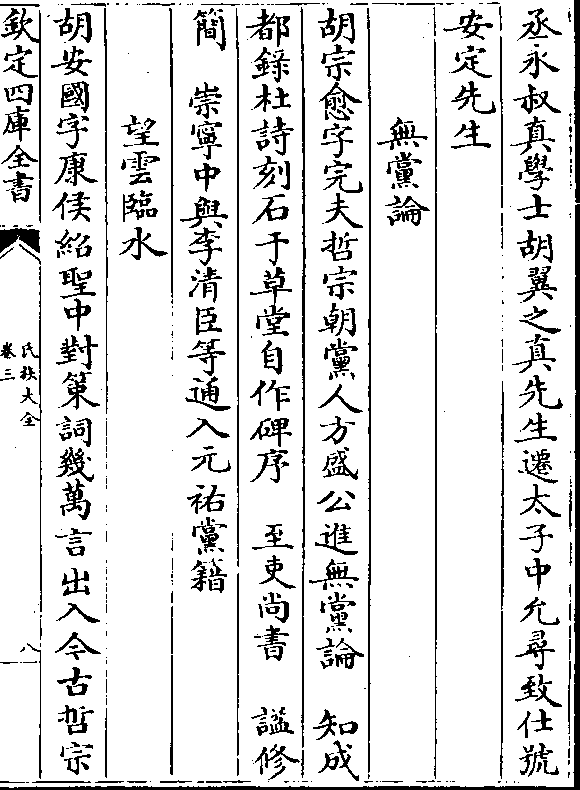 丞永叔真學士胡翼之真先生遷太子中允尋致仕號
安定先生
無黨論
胡宗愈字完夫哲宗朝黨人方盛公進無黨論　知成
都錄杜詩刻石于草堂自作碑序　至吏尚書　謚修
簡　崇寧中與李清臣等通入元祐黨籍
望雲臨水
胡安國字康侯紹聖中對策詞幾萬言出入今古哲宗
欽定四庫全書
氏族大全
卷三
八